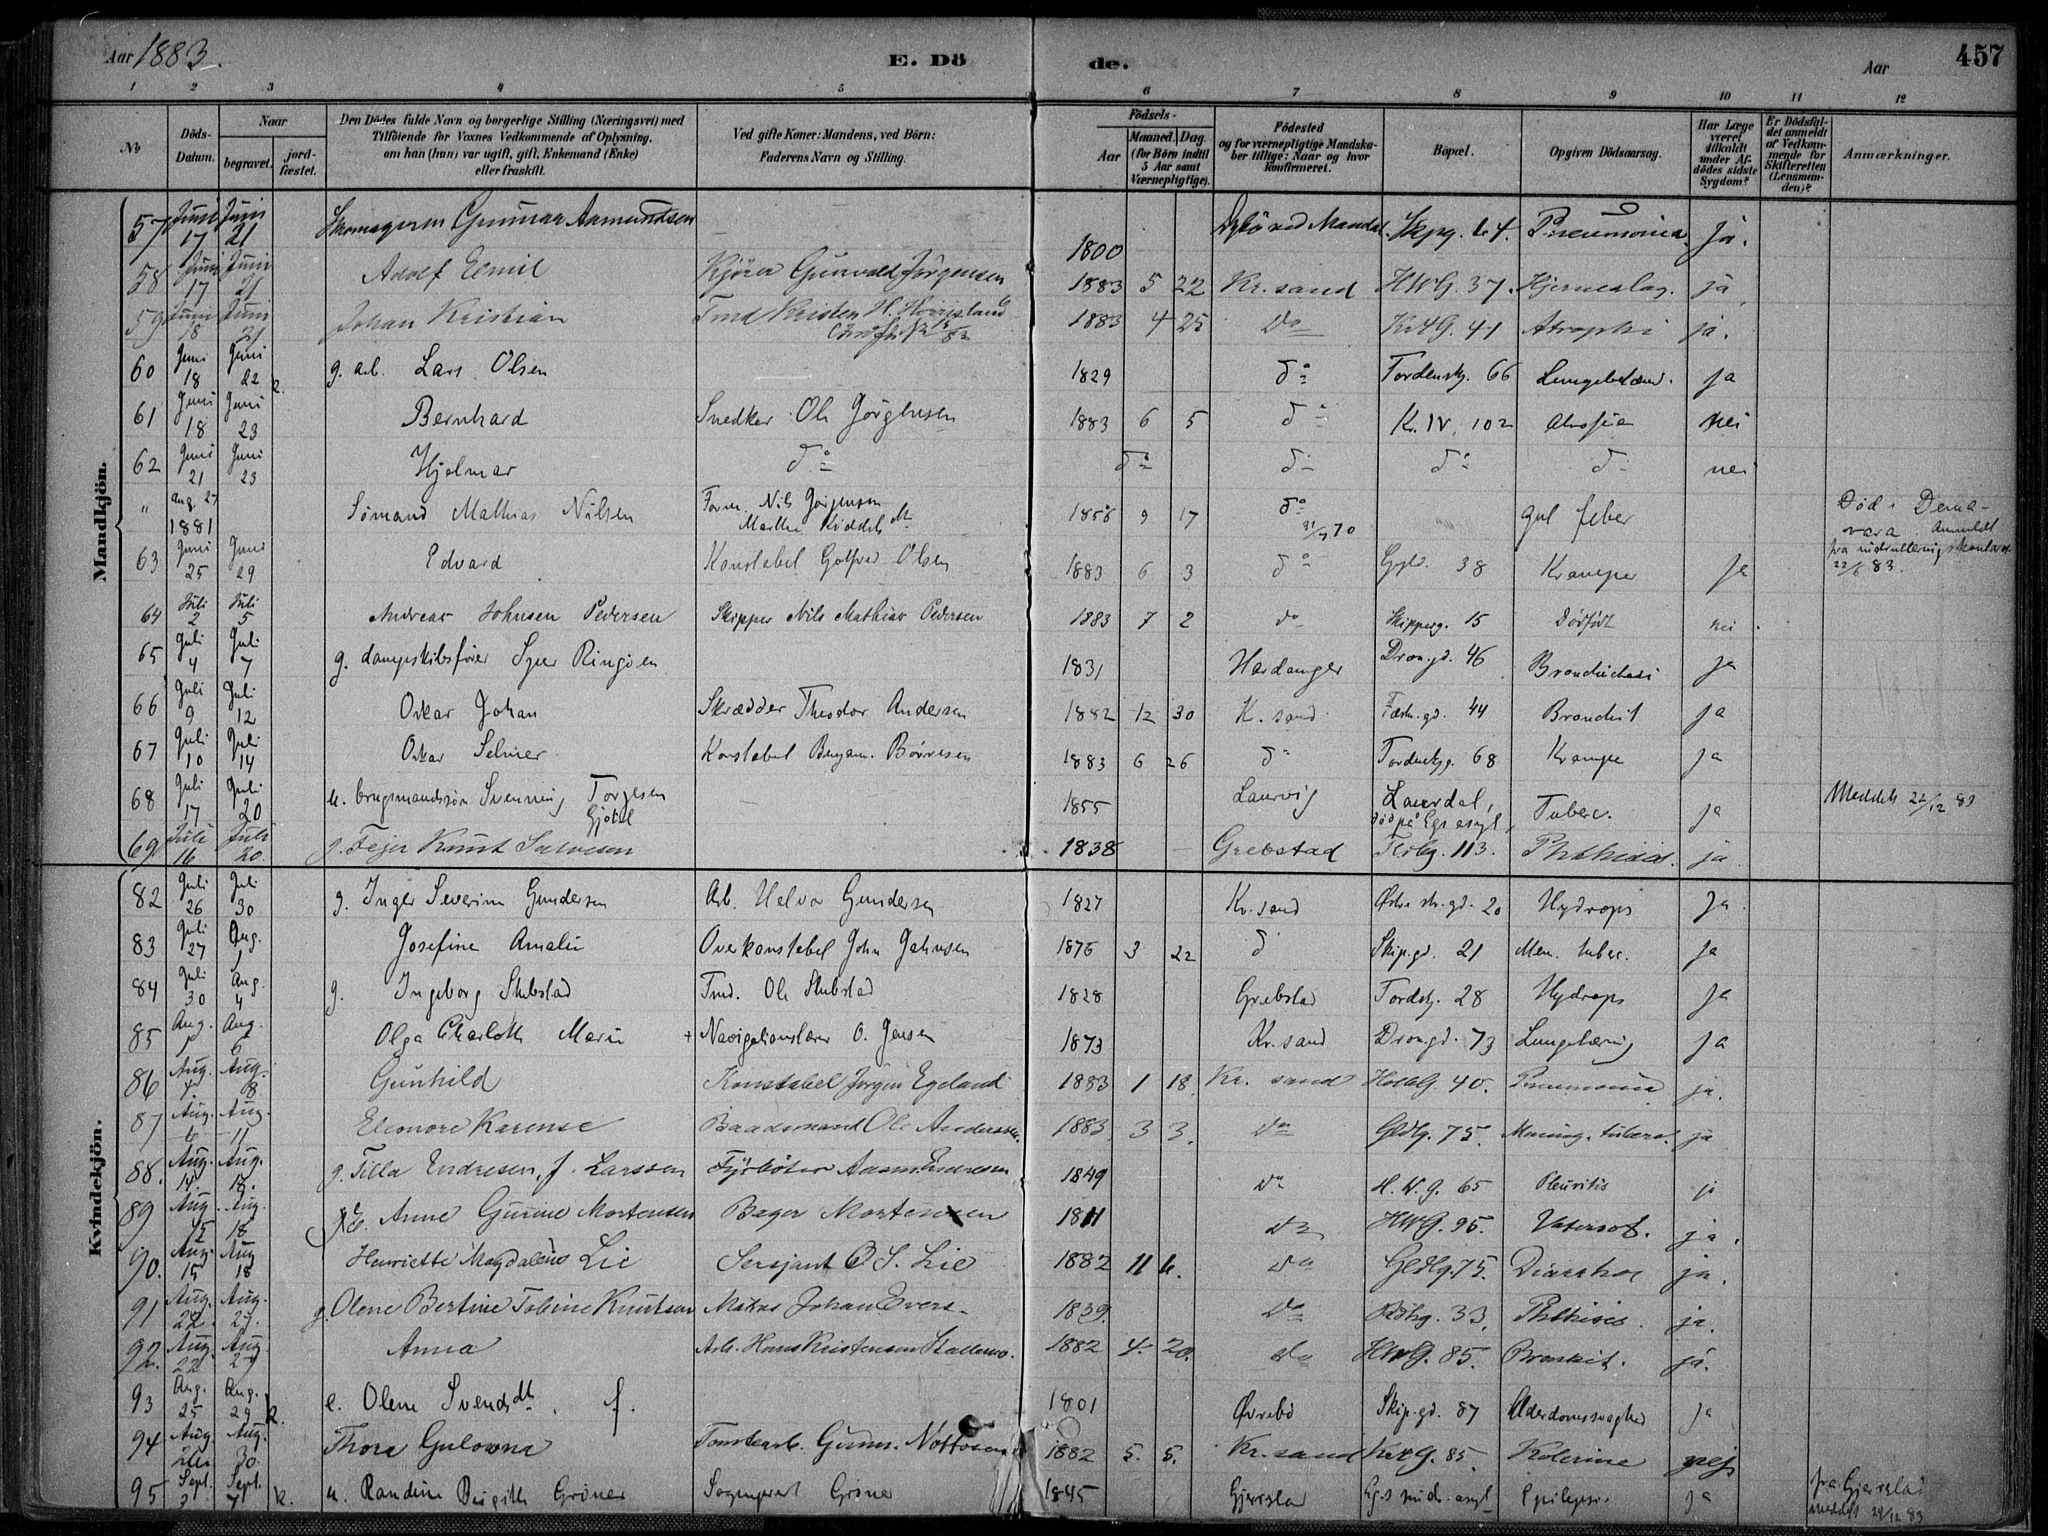 Aar 1883. E. Dö de. Aar 457
1 2 3 4 5 6 7 8 9 10 11 12
No Döds-Datum. Naar begravet. jordfæstet. Den Dödes fulde Navn og borgerlige Stilling (Næringsvei) med Tilföiende for Voxnes Vedkommende af Oplysning, om han (hun) var ugift, gift, Enkemand (Enke) eller fraskilt. Ved gifte Koner: Mandens, ved Börn: Faderens Navn og Stilling. Födsels- Aar Maaned. Dag. (for Börn indtil 5 Aar samt Værnepligtige). Födested og for værnepligtige Mandskaber tillige: Naar og hvor konfirmeret. Bopæl. Opgiven Dödsaarsag. Har Læge været tilkaldt under Afdödes sidste Sygdom? Er Dödsfaldet anmeldt af Vedkommende for Skifteretten (Lensmanden)? Anmærkninger.
Mandkjön.
57 Juni 17 Juni 21 Skomageren Gunnar Aamundsen 1800 Dybö ved Mandal. Skpg. 64. Pneumonia. ja.
58 Juni 17 Juni 21 Adolf Emil Kjörer Gunvald Jörgensen 1883 5 22 Kr.sand HWG. 37. Hjerneslag. ja
59 Juni 18 Juni 21 Johan Kristian Tmd Kristen H. 1883 4 25 Do KrIVG. 41 Atrophi ja.
60 Juni 18 Juni 22 k. g. arb. Lars Olsen 1829 do Tordenskg. 66 Lungebetænd. ja
61 Juni 18 Juni 23 Bernhard Snedker Ole Jørgensen 1883 6 5 do Kr. IV. 102 Atrofia nei
62 Juni 21 Juni 23 Hjelmar do do do do do nei
" Aug. 27 1881 Sömand Mathias Nilsen Foræ. Nils Jørgensen 1856 9 17 do gul feber Død i Demavara Anmeldt
Marthe fra indrulleringskontoret 22/6 83.
63 Juni 25 Juni 29 Edvard Konstabel Olsen 1883 6 3 do 38 Krampe ja
64 Juli 2 Juli 5 Andreas Johnsen Pedersen Skipper Nils Mathias Pedersen 1883 7 2 do Skipperg. 15 Dødfødt nei
65 Juli 4 Juli 7 g. dampskibsfører Sjur Ringøen 1831 Hardanger Dron.gd. 46 ja
66 Juli 9 Juli 12 Oskar Johan Skrædder Theodor Andersen 1882 12 30 K. sand Fæstn.gd. 44 Bronchit ja
67 Juli 10 Juli 14 Oskar Selmer Konstabel Benjam. Børresen 1883 6 26 do Tordenskg. 68 Krampe ja
68 Juli 17 Juli 20 u. brugsmandssøn Svenning Torgesen 1855 Laurvig Laurdal, Tuberc. ja Meddelt 22/12 83
død på Egs asyl,
69 Juli 16 Juli 20 g. Fejer Knut Salvesen 1838 Grebstad 113. Phthisis. ja
Kvindekjön.
82 Juli 26 Juli 30 g. Inger Severine Gundersen Arb. Helvor Gundersen 1827 Kr.sand Østre str.gd. 20 Hydrops ja
83 Juli 27 Aug. 1 Josefine Amalie Overkonstabel John Jahnsen 1876 3 22 do Skip.gd. 21 Men. tuberc. ja
84 Juli 30 Aug. 4 g. Ingeborg Stubstad Tmd. Ole Stubstad 1828 Grebstad Tordskg. 28 Hydrops ja
85 Aug. 1 Aug. 6 Olga Charlotte Marie + Navigationslærer O. Jensen 1873 Kr.sand Drongd. 73 Lungetæring ja
86 Aug. 4. Aug. 8 Gunhild Konstabel Jørgen Egeland 1883 1 18 Kr. sand HolbG. 40. Pneumonia ja.
87 Aug. 6 Aug. 11 Eleonore Karense Baadsmand Ole Andersen. 1883 3 3. do Gldlg. 75. Mening. tuberc. ja
88. Aug. 14. Aug. 18. g. Tilla Endresen, f. Larssen Fyrböter Endresen 1849 do H. W. G. 65 Pleuritis ja
89 Aug. 15 Aug. 18 e. Anne Gurine Mortensen Bager Mortensen 1811 do HWG. 95. Vatersot. ja.
90. Aug. 15 Aug 18 Henriette Magdalene Lie Sersjant O S. Lie 1882 11 6. do Gldlg. 75. Diarrhoe ja.
91 Aug. 22. Aug. 27. g. Olene Bertine Tobine Knutson Johan Evers- 1839. do 33, Phthisis. ja.
92. Aug. 22 Aug. 27 Anna Arb. Hans Kristensen 1882 4. 20. do HWG. 85. Bronkit. ja.
93 Aug. 25 Aug. 29 k. e. Olene Svendsdt. f. 1801 Øvrebö Skip.gd. 87 Alderdomssvaghed ja
94 Aug. 26 Aug. 30. Thora Gulowna Tomtearb. Gunn. 1882 5. 5. Kr.sand KrIVG. 85. Kolerine nej
95 Sept. 3 Sept. 7 k. u. Randine Birgitte Grøner Sogneprest Grøner 1845 Gjerstad Egs sinds.asyl Epilepsi ja fra Gjerrstad meddelt 29/12 83